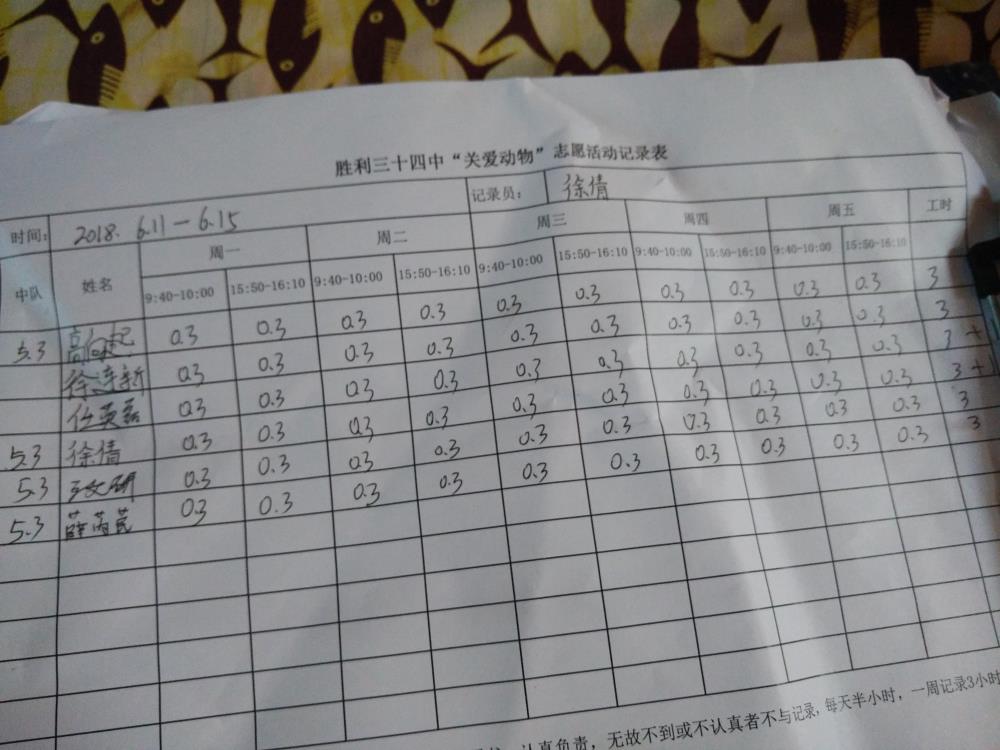 胜利三十四中“关爱动物”志愿活动记录表
时间： 2018. 6.11—6.15 记录员： 徐倩
中队 姓名 周一 周二 周三 周四 周五 工时
9:40-10:00 15:50-16:10 9:40-10:00 15:50-16:10 9:40-10:00 15:50-16:10 9:40-10:00 15:50-16:10 9:40-10:00 15:50-16:10
5.3 0.3 0.3 0.3 0.3 0.3 0.3 0.3 0.3 0.3 0.3 3
徐连新 0.3 0.3 0.3 0.3 0.3 0.3 0.3 0.3 0.3 0.3 3
任英磊 0.3 0.3 0.3 0.3 0.3 0.3 0.3 0.3 0.3 0.3 3+
5.3 徐倩 0.3 0.3 0.3 0.3 0.3 0.3 0.3 0.3 0.3 0.3 3+
5.3 0.3 0.3 0.3 0.3 0.3 0.3 0.3 0.3 0.3 0.3 3
5.3 0.3 0.3 0.3 0.3 0.3 0.3 0.3 0.3 0.3 0.3 3
认真负责，无故不到或不认真者不与记录，每天半小时，一周记录3小时